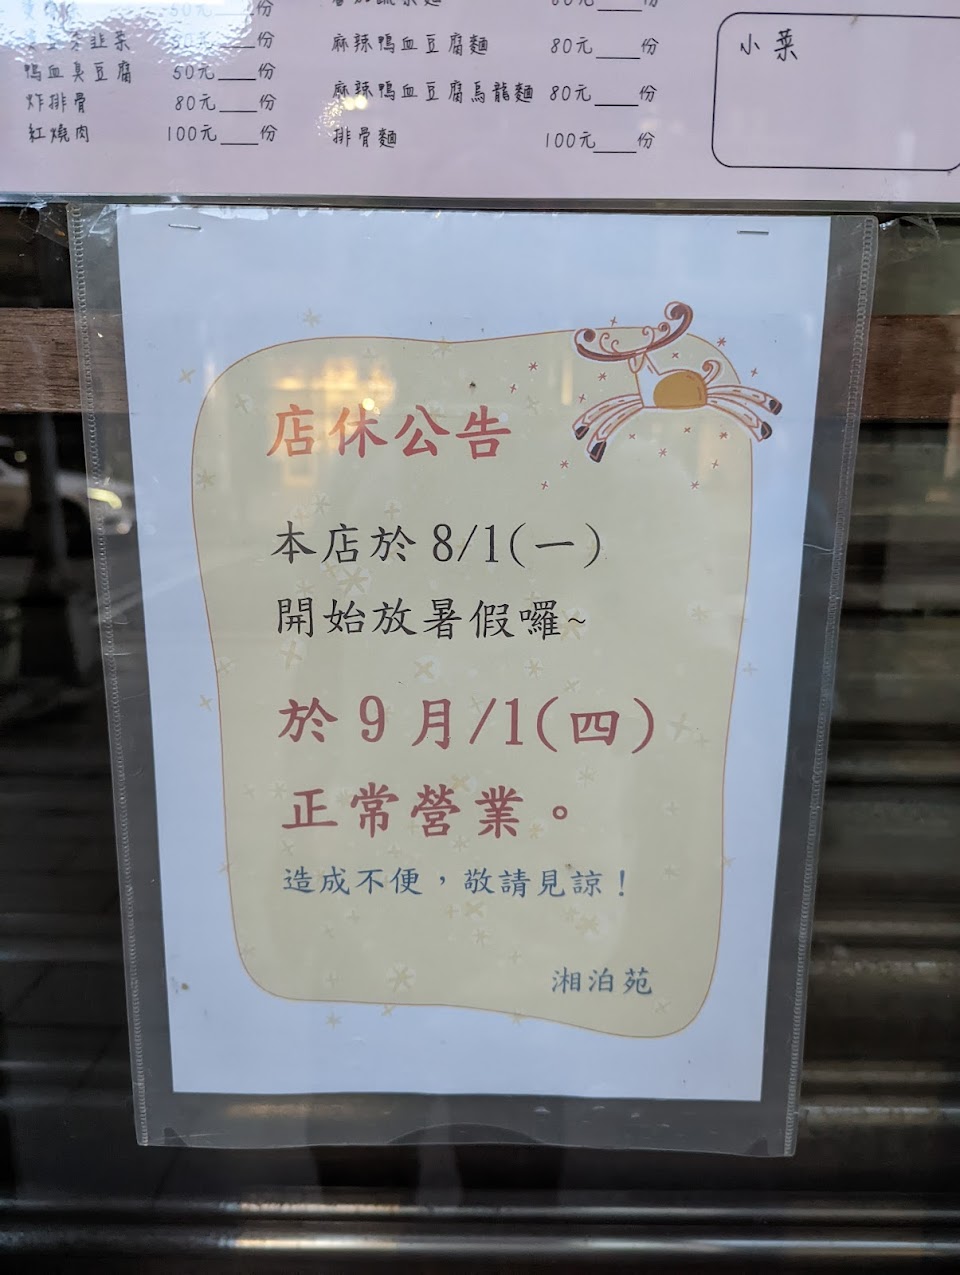 50元___份
50元___份
鴨血臭豆腐 50元___份
炸排骨 80元___份
紅燒肉 100元___份
80元___份
麻辣鴨血豆腐麵 80元___份
麻辣鴨血豆腐烏龍麵 80元___份
排骨麵 100元___份
小菜
店休公告
本店於 8/1(一)
開始放暑假囉~
於 9 月/1(四)
正常營業。
造成不便，敬請見諒！
湘泊苑